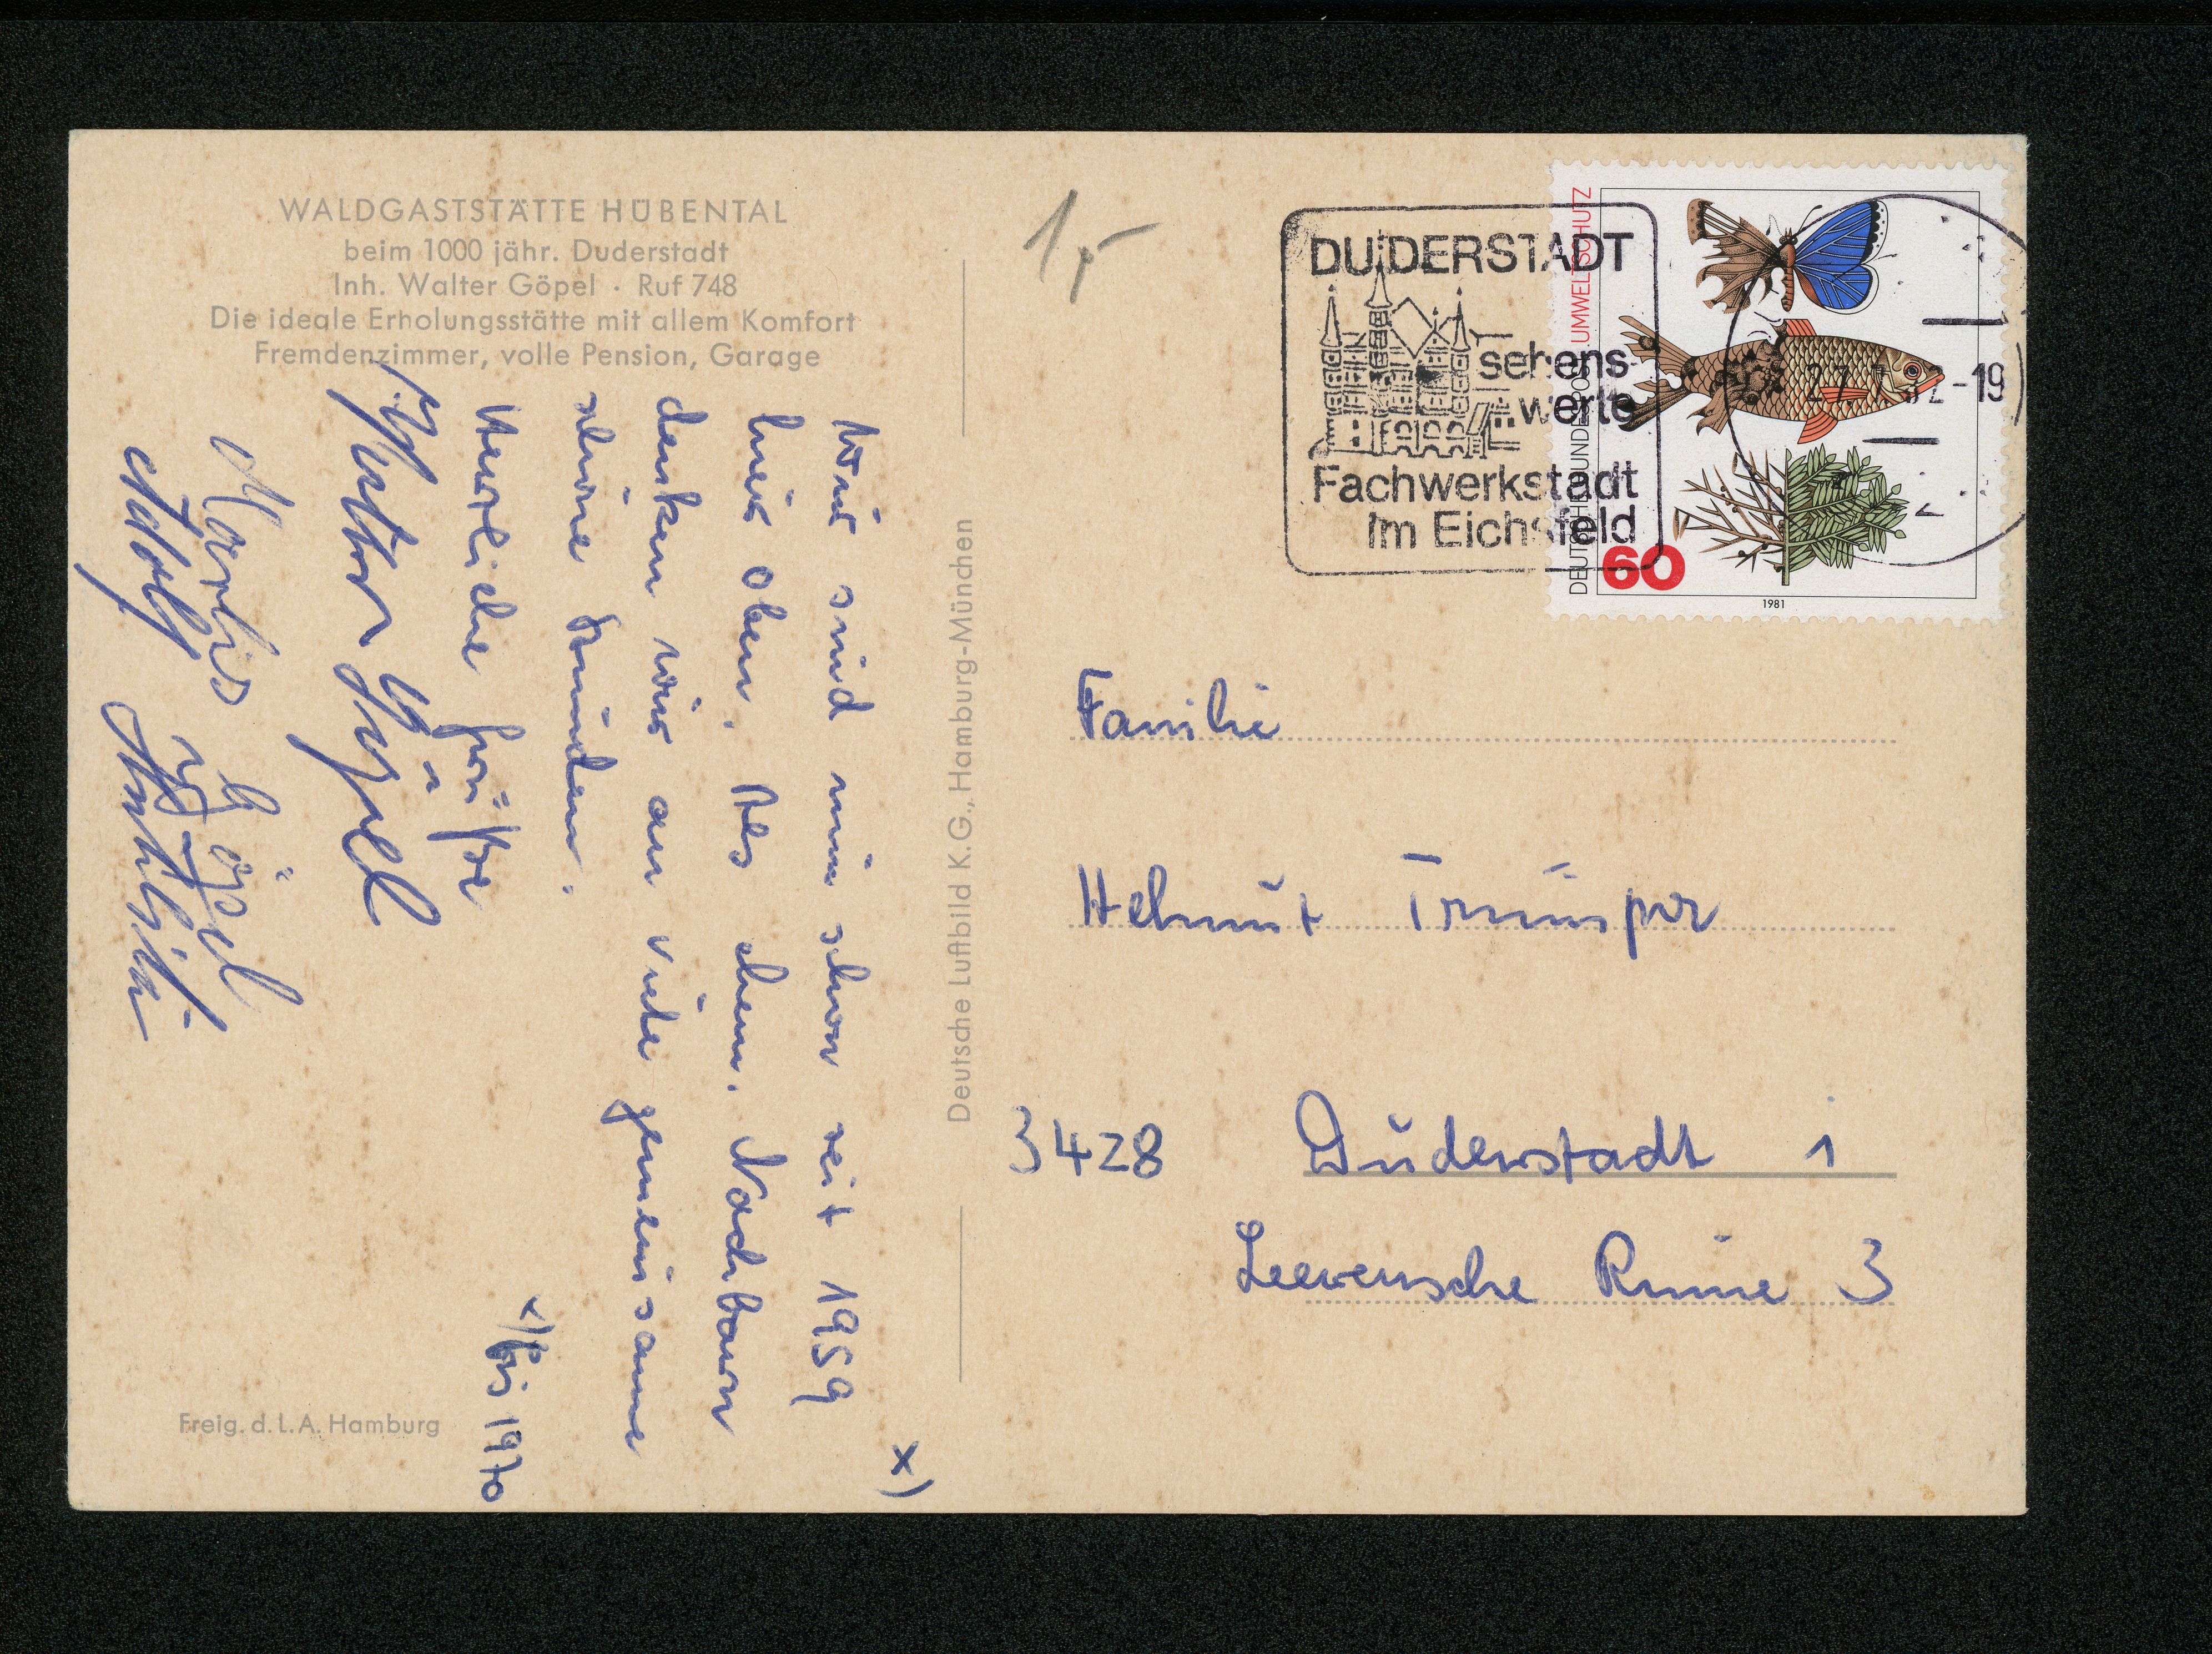 WALDGASTSTÄTTE HÜBENTAL
beim 1000 jähr. Duderstadt
Inh. Walter Göpel · Ruf 748
Die ideale Erholungsstätte mit allem Komfort
Fremdenzimmer, volle Pension, Garage
Wir sind nun schon seit 1959 x)
hier oben. Als ehem. Nachbarn
denken wir an viele gemeinsame
schöne Stunden.
Herzliche Grüße
x) bis 1970
Walter Göpel
Marlies Göpel
Adolf
Freig. d. L. A. Hamburg
Deutsche Luftbild K.G., Hamburg-München
1,-
DUDERSTADT
sehens
werte
Fachwerkstadt
im Eichsfeld
DEUTSCHE BUNDESPOST UMWELTSCHUTZ
60
1981
27.7. -19
Familie
Helmut Trümper
3428 Duderstadt 1
Leewensche Rinne 3